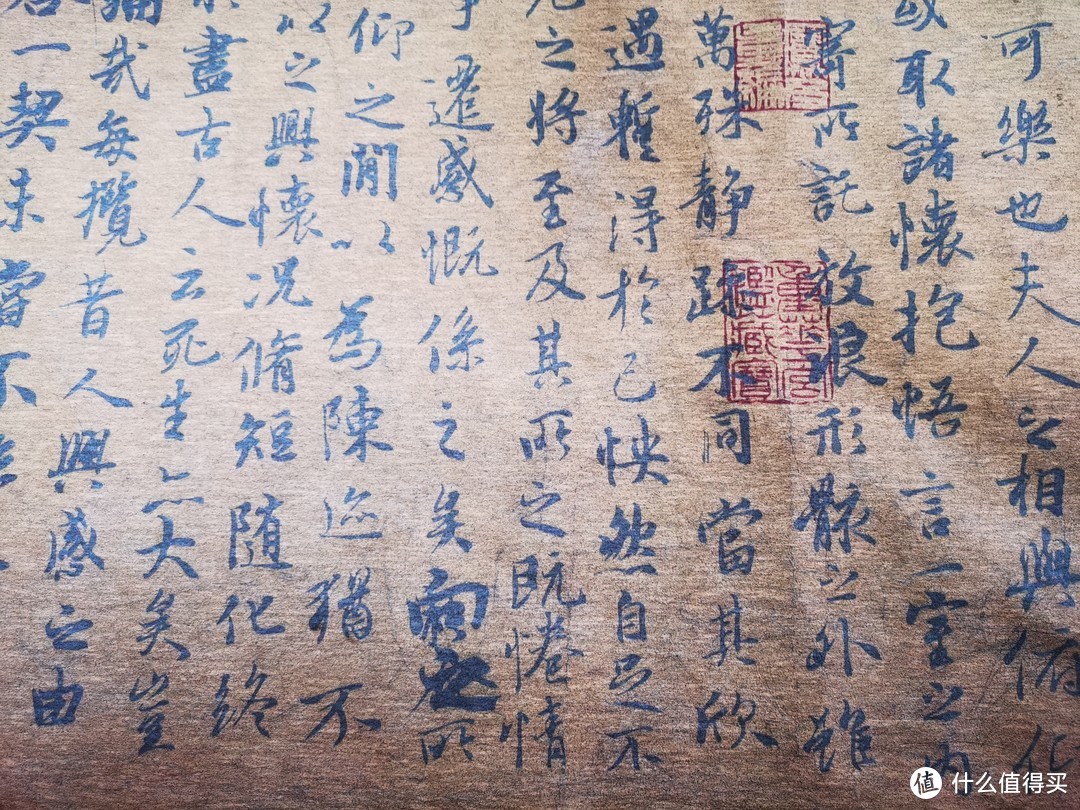 可樂也夫人之相與俯仰
或取諸懷抱悟言一室之内
寄所託放浪形骸之外雖
萬殊静躁不同當其欣
遇暫得於己怏然自足不
之將至及其所之既惓情
事遷感慨係之矣向之所
仰之閒以為陳迹猶不
以之興懷况脩短随化終
盡古人云死生亦大矣豈
痛哉每攬昔人興感之由
一契未嘗不
重華宮
鑑藏寶
值 什么值得买